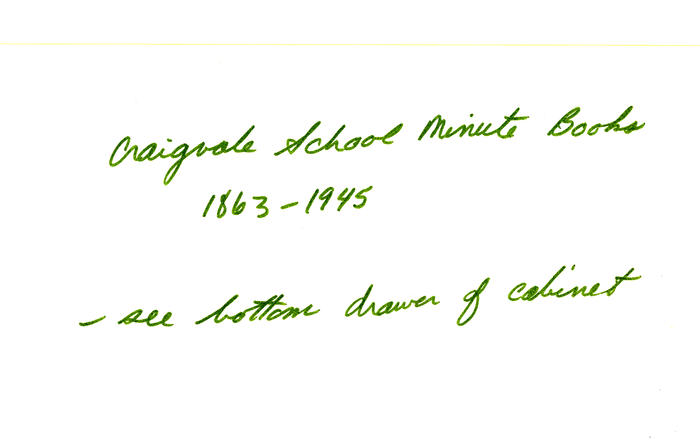 Craigvale School Minute Books
1863-1945
- see bottom drawer of cabinet